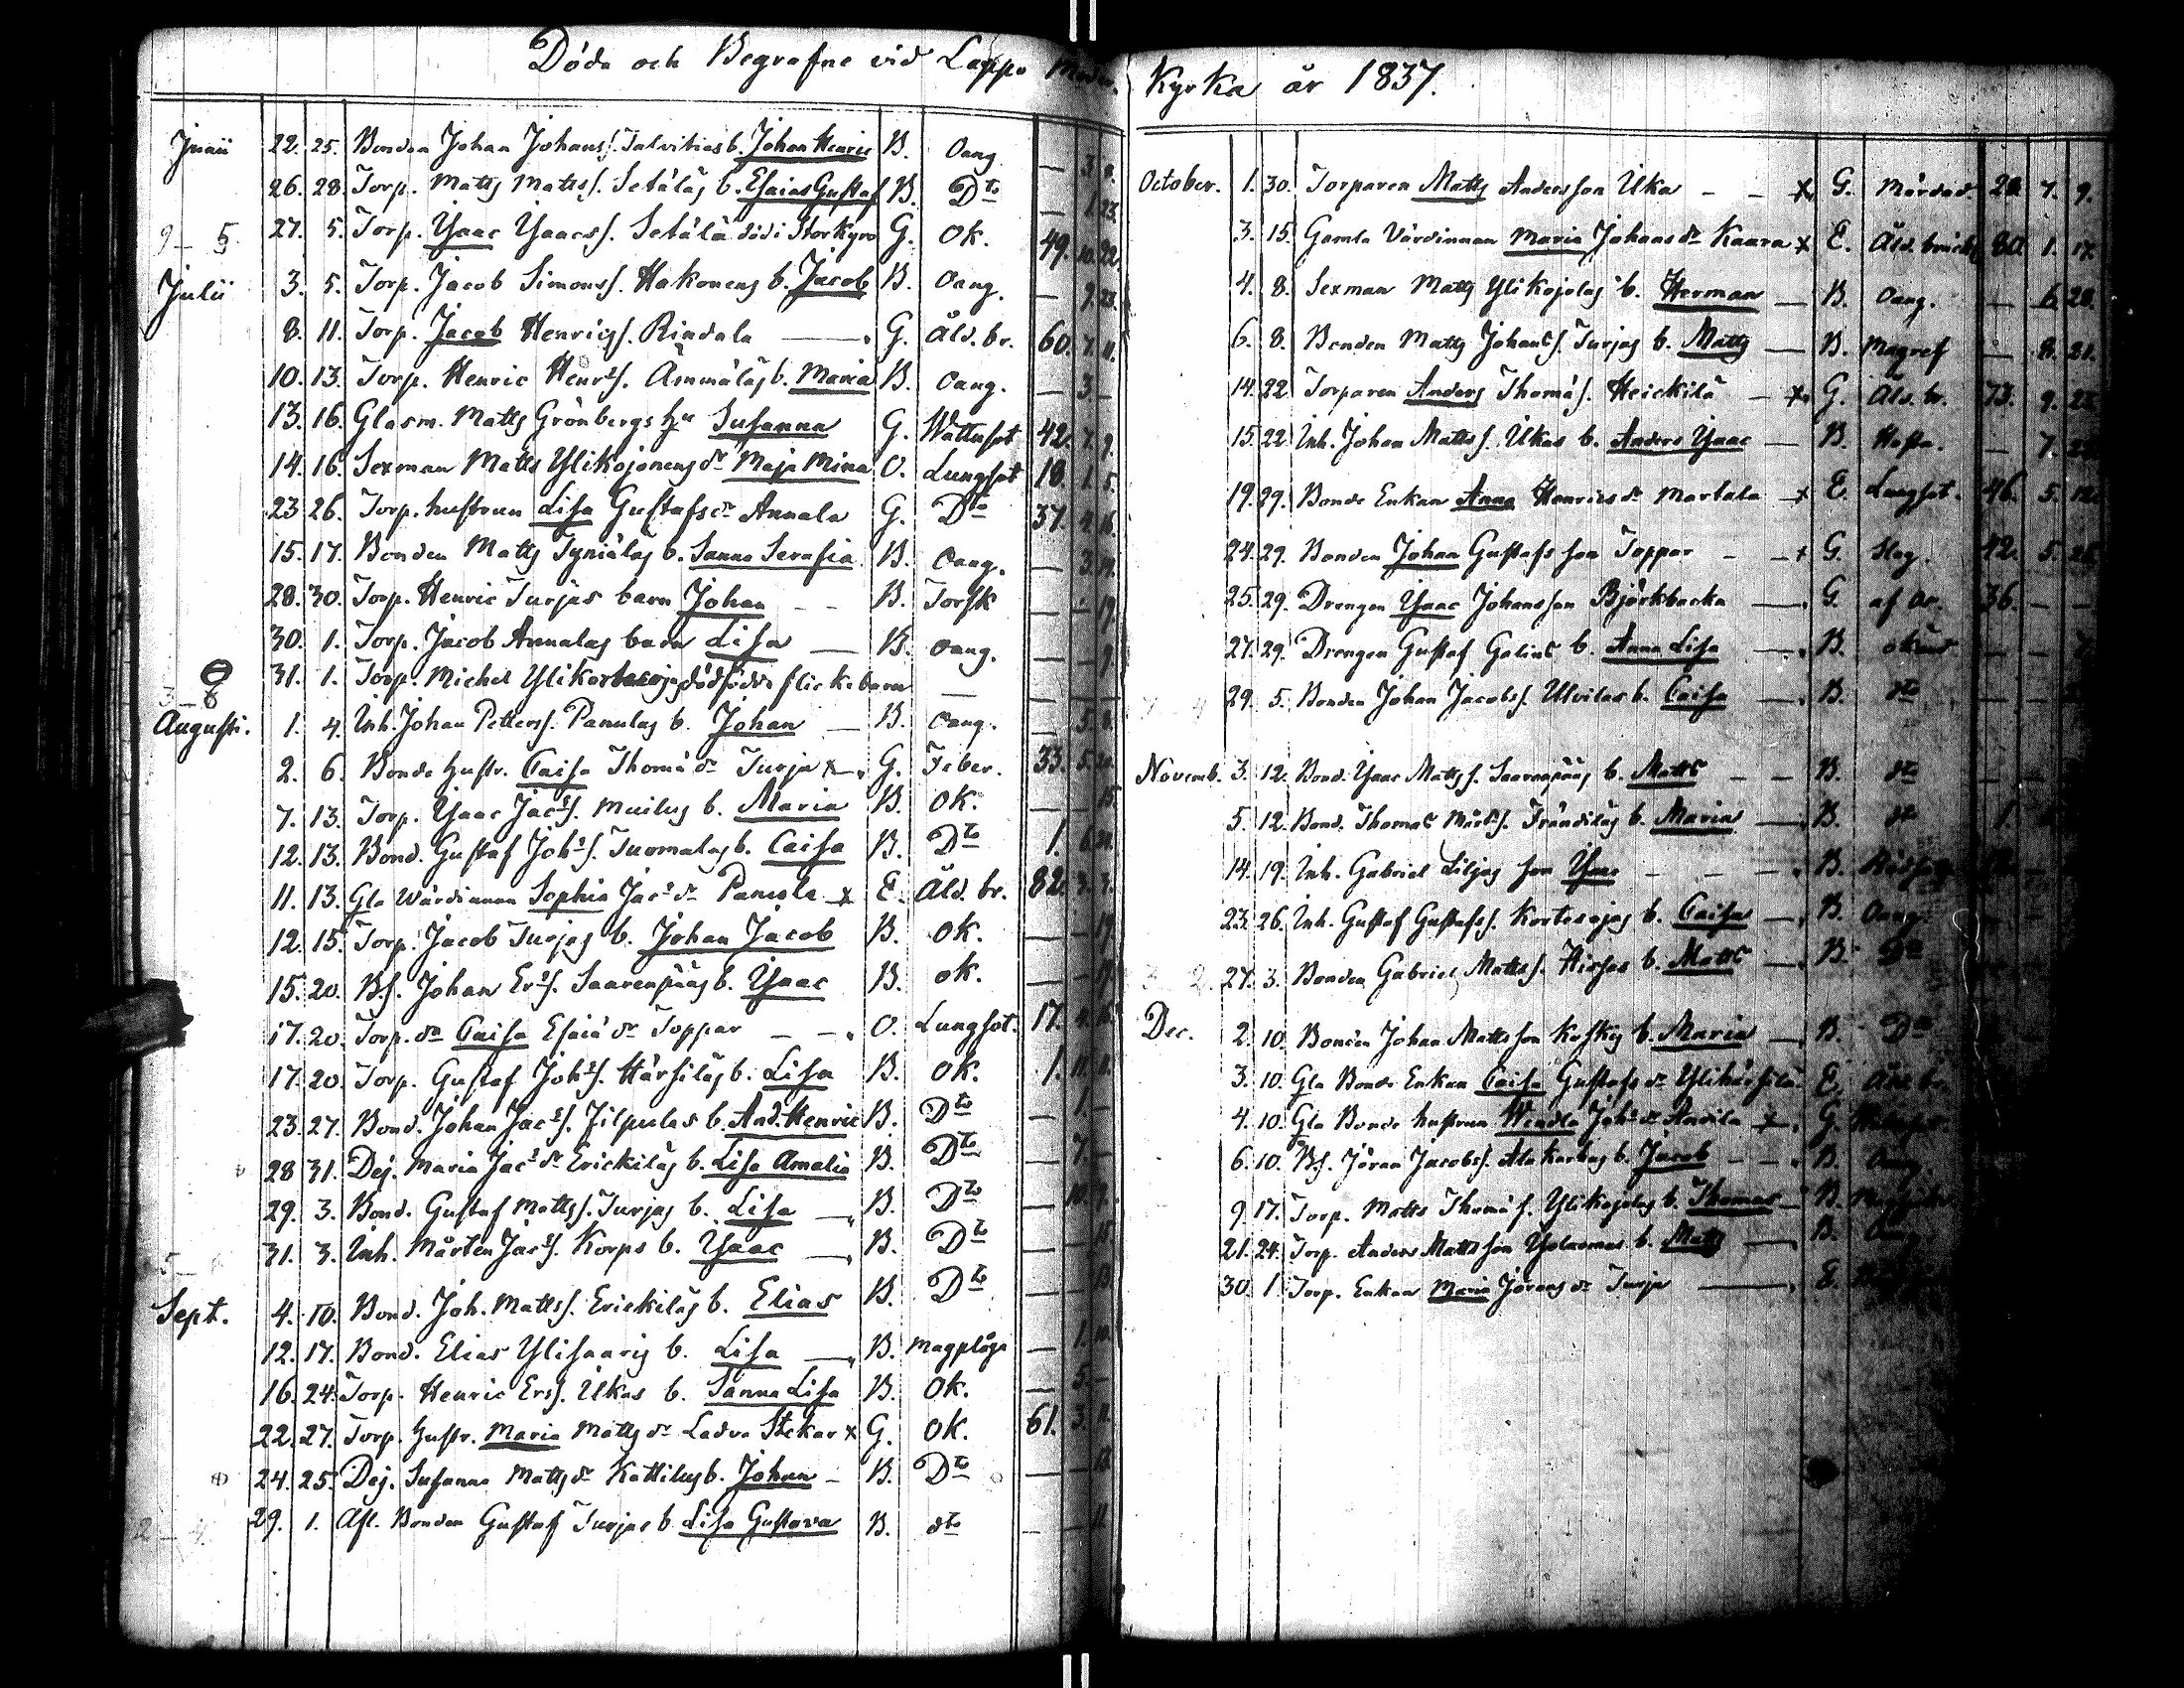 Döda och Begrafne vid Lappo Moder Kyrka år 1837.
Junii 22. 25. Bonden Johan Johanss. Talvities b. Johan Henric B. Oang — 3. 8.
26. 28. Torp. Matts Matss. Setäläs b. Esaias Gustaf B. Dto — 1. 23.
9 — 5 27. 5. Torp. Isaac Isaacs. Setälä död i Storkyro G. OK. 49. 10. 22.
Julii 3. 5. Torp. Jacob Simonss. Hakonens b. Jacob B. Oang. — 9. 23.
8. 11. Torp. Jacob Henrics. Rindala — G. Åld. br. 60. 7. 11.
10. 13. Torp. Henric Henrs. Ämmäläs b. Maria B. Oang. — 3. —
13. 16. Glasm. Matts Grönbergs hu Susanna G. Wattusot 42. 7. 9.
14. 16. Sexman Matts Ylikojonens dr Maja Mina O. Lungsot 18. 1. 5.
23 26. Torp. hustrun Lisa Gustafsdr Annala G. Dto 37. 4. 16.
15. 17. Bonden Matts Tyniäläs b. Sanna Serafia B. Oang. — 3. 19.
28. 30. Torp. Henric Turjas barn Johan — — B. Torsk — — 19.
30. 1. Torp. Jacob Annalas barn Lisa — B. Oang. — — 9.
31. 1. Torp. Michel Ylikortesojas dödfödda flickebarn —
3 — 8
Augusti. 1. 4. Inh. Johan Petterss. Panulas b. Johan — B. Oang. — 5. 8.
2. 6. Bonde hustr. Caisa Thomä dr Turja x — G. Feber. 33. 5. 20.
7. 13. Torp. Isaac Jacs. Muilus b. Maria B. OK. — — 15.
12. 13. Bond. Gustaf Johs. Tuomalas b. Caisa B. Dto 1. 6. 21.
11. 13. Gla Wärdinnan Sophia Jacs dr Panula x E. Åld. br. 82. 3. 3.
12. 15. Torp. Jacob Turjas b. Johan Jacob B. OK. — — 19.
15. 20. B.s. Johan Ers. Saarenpääs b. Isaac B. OK. — — 19.
17. 20. Torp. dr Caisa Esaiä dr Toppar — — O. Lungsot. 17. 4. 16.
17. 20. Torp. Gustaf Johs. Härsiläs b. Lisa B. OK. 1. 11. 11.
23. 27. Bond. Johan Jacs. Jilpulas b. And. Henric B. Dto — 1. —
28 31. Dej. Maria Jacs dr Erickiläs b. Lisa Amalia B. Dto — 7. —
29. 3. Bond. Gustaf Mattss. Turjas b. Lisa — B. Dto — 10. 7.
31. 3. Inh. Mårten Jacs. Korps b. Isaac — B. Dto — — 15.
Sept. 4. 10. Bond. Joh. Mattss. Erickiläs b. Elias B. Dto — — 13.
12. 17. Bond. Elias Ylisaaris b. Lisa — B. Magplåga — 1. 10.
16. 24. Torp. Henric Erss. Ukas b. Sanna Lisa B. OK. — 5. —
22. 27. Torp. hustr. Maria Matts dr Ladva Stekar x G. OK. 61. 3. 11.
24. 25. Dej. Susanna Matts dr Kattilus b. Johan — B. Dto — — 12.
29. 1. Afl. Bonden Gustaf Turjas b. Lisa Gustava B. dto — — 11.
October. 1. 30. Torparen Matts Andersson Uka — — x G. Mördad. 28. 7. 9.
3. 15. Gamla Värdinnan Maria Johans dr Kaara x E. Åld. bräckl. 80. 1. 17.
4. 8. Sexman Matts Ylikojolas b. Herman — B. Oang. — 6. 28.
6. 8. Bonden Matts Johans. Turjas b. Matts — B. Magref — 8. 21.
14. 22. Torparen Anders Thomäs. Heickilä — x G. Åld. br. 73. 9. 23.
15. 22. Inh. Johan Mattss. Ukas b. Anders Isaac — B. Hosta. — 7.
19. 29. Bonde Enkan Anna Henrics dr Martala x E. Lungsot. 46. 5. 12.
24. 29. Bonden Johan Gustafsson Toppar — — x G. Slag. 42. 5.
25. 29. Drengen Isaac Johansson Björkbacka — G. af Or. 36. — —
27. 29. Drengen Gustaf Galins b. Anna Lisa — B. okänd — —
29. 5. Bonden Johan Jacobss. Ulvilas b. Caisa — B. dto — —
Novemb. 3. 12. Bond. Isaac Mattss. Saarenpääs b. Matts — — B. dto — —
5. 12. Bond. Thomas Mårts. Frändiläs b. Maria — B. dto 1.
14. 19. Inh. Gabriel Liljas son Isaac — — — B.
23. 26. Inh. Gustaf Gustafss. Kortesojas b. Caisa — B. Oang
27. 3. Bonden Gabriel Mattss. Hirsas b. Matts — B. Dto
Dec. 2. 10. Bonden Johan Mattsson Koskis b. Maria — B. Dto
3. 10. Gla Bonde Enkan Caisa Gustafs dr Ylihärsilä E. Åld. br.
4. 10. Gla Bonde hustrun Wendla Johs dr Andila x G.
6. 10. B.s. Jöran Jacobss. Alakarhus b. Jacob — — B. Oang.
9. 17. Torp. Matts Thomäs. Ylikojolas b. Thomas — B.
21. 24. Torp. Anders Mattsson b. Matts — B.
30. 1. Torp. Enkan Maria Jörans dr Turja — E.